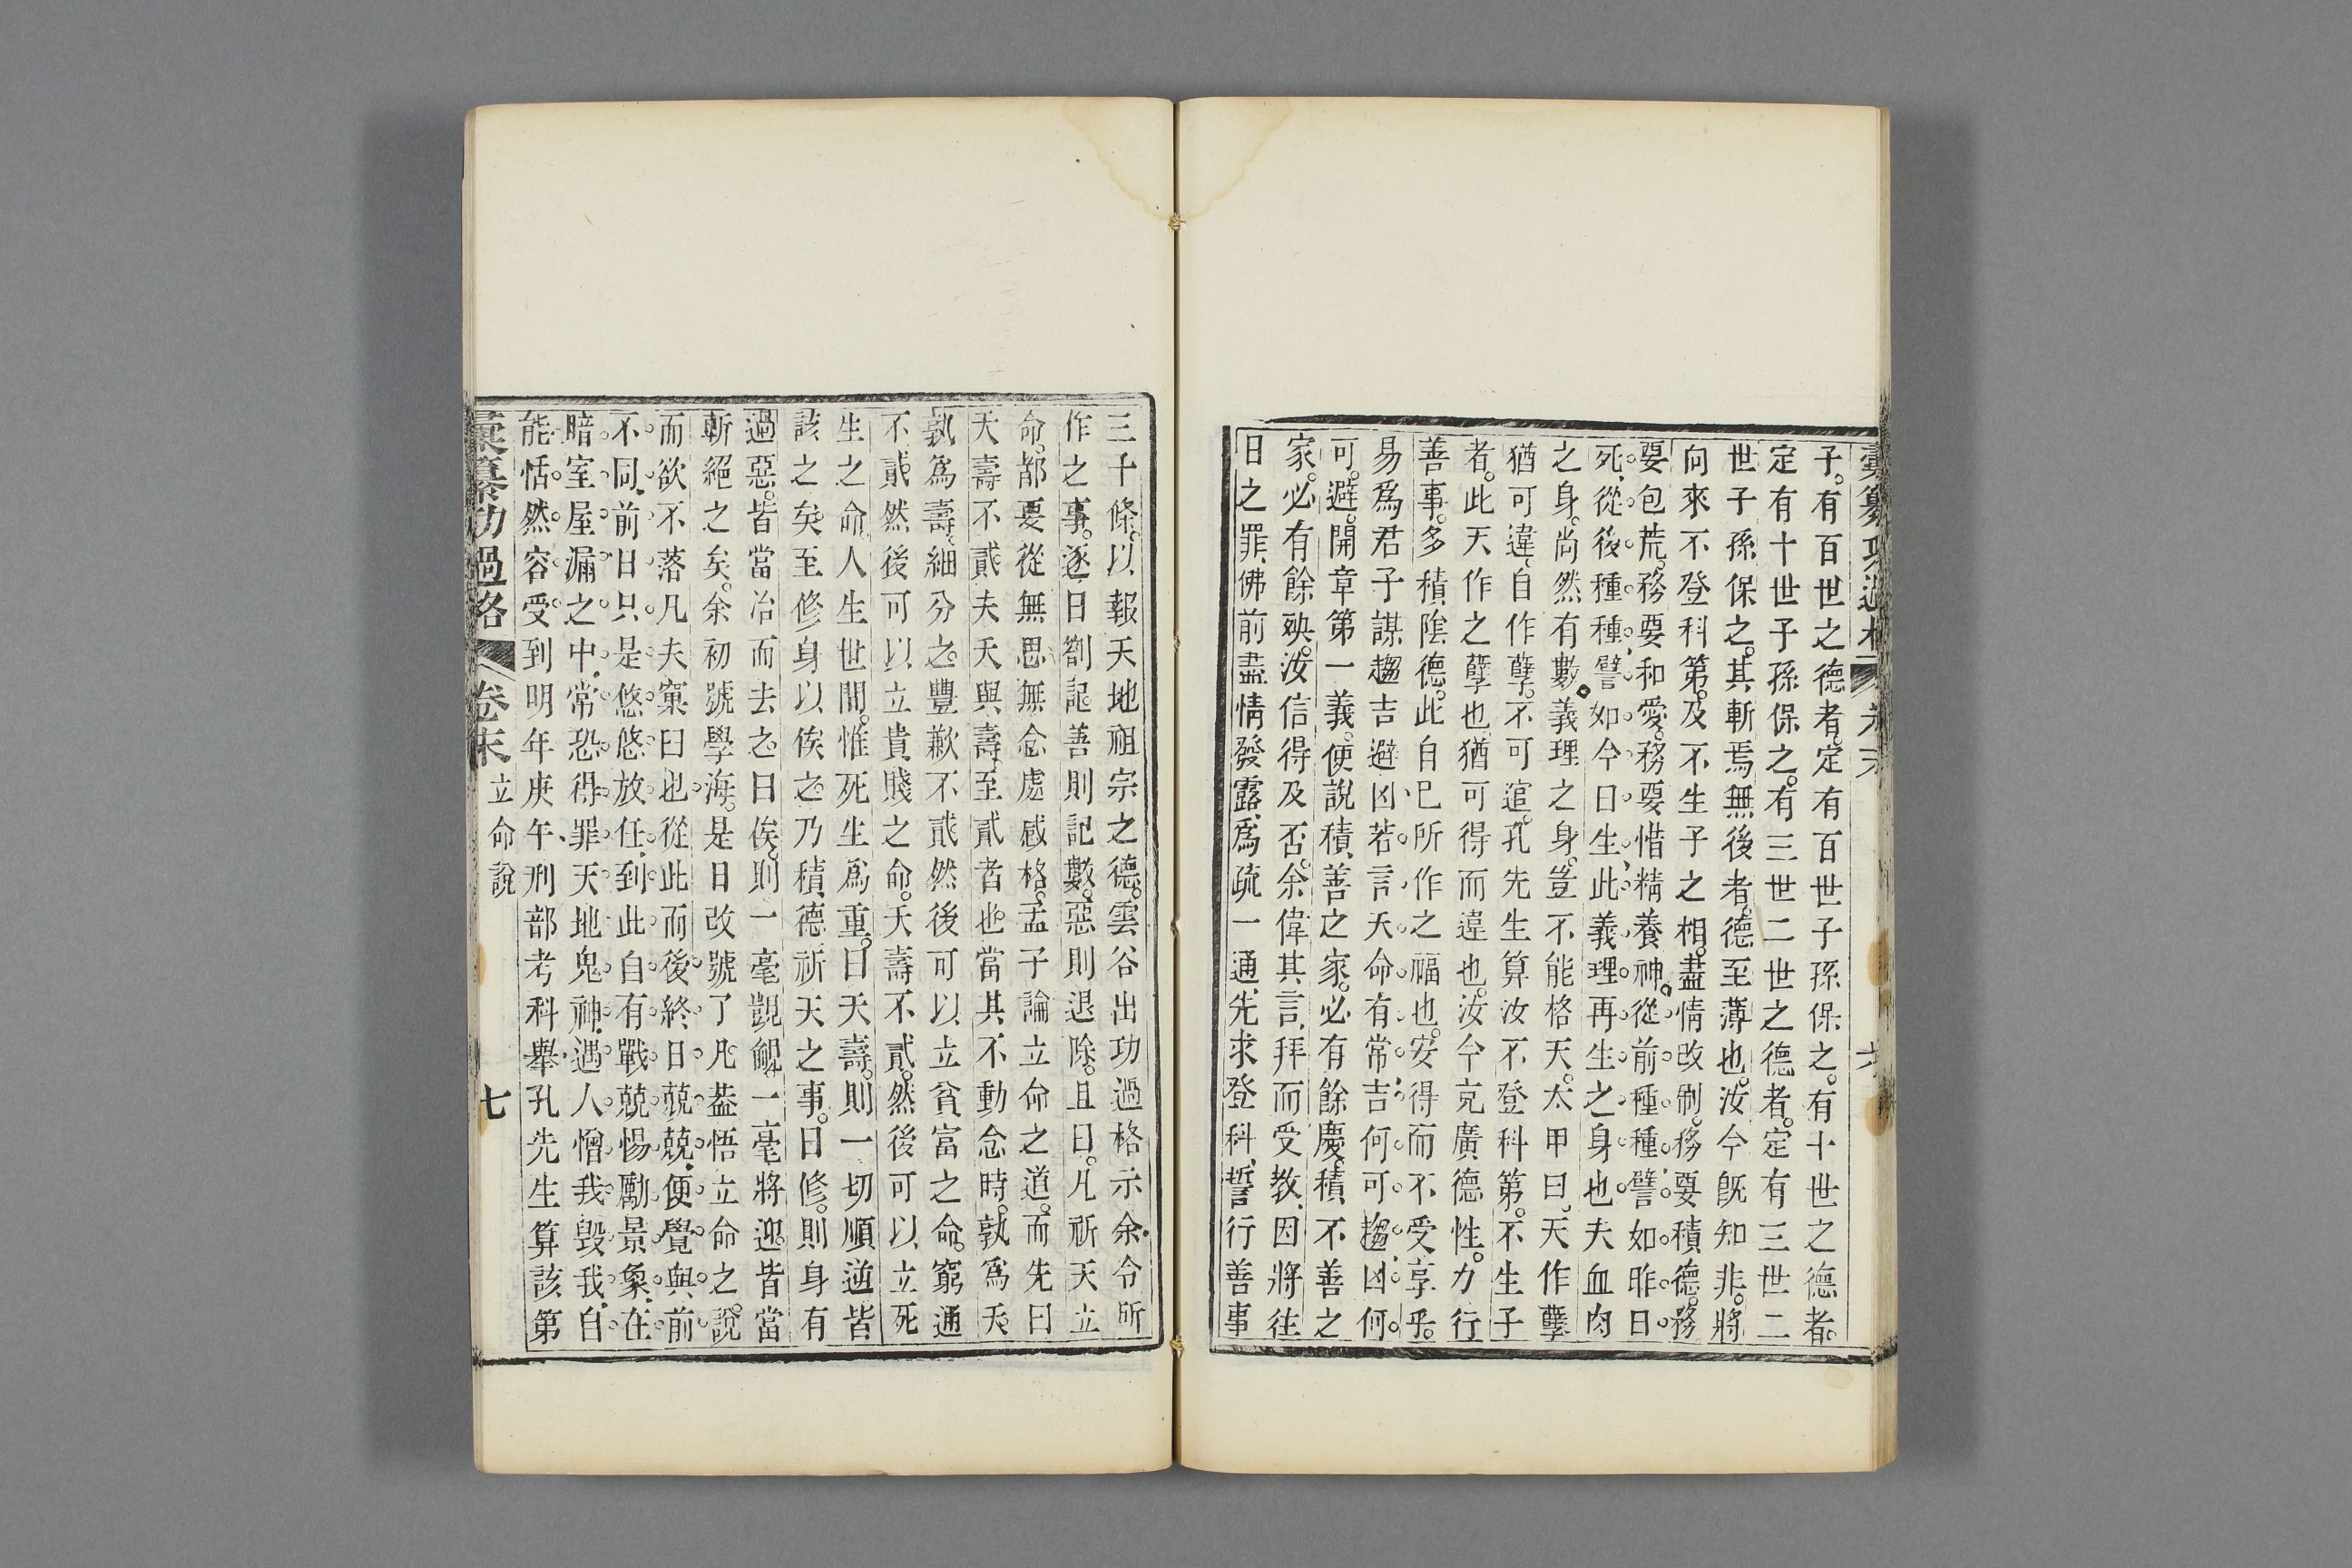 彙纂功過格 卷末 六
子有百世之德者定有百世子孫保之有十世之德者
定有十世子孫保之有三世二世之德者定有三世二
世子孫保之其斬焉無後者德至薄也汝今旣知非將
向來不登科第及不生子之相盡情改刷務要積德務
要包荒務要和愛務要惜精養神從前種種譬如昨日
死從後種種譬如今日生此義理再生之身也夫血肉
之身尚然有數義理之身豈不能格天太甲曰天作孽
猶可違自作孽不可逭孔先生算汝不登科第不生子
者此天作之孽也猶可得而違也汝今克廣德性力行
善事多積陰德此自己所作之福也安得而不受享乎
易爲君子謀趨吉避凶若言天命有常吉何可趨凶何
可避開章第一義便說積善之家必有餘慶積不善之
家必有餘殃汝信得及否余偉其言拜而受教因將往
日之罪佛前盡情發露爲疏一通先求登科誓行善事
三千條以報天地祖宗之德雲谷出功過格示余令所
作之事逐日劄記善則記數惡則退除且曰凡祈天立
命都要從無思無念處感格孟子論立命之道而先曰
夭壽不貳夫夭與壽至貳者也當其不動念時孰爲夭
孰爲壽細分之豐歉不貳然後可以立貧富之命窮通
不貳然後可以立貴賤之命夭壽不貳然後可以立死
生之命人生世間惟死生爲重曰夭壽則一切順逆皆
該之矣至修身以俟之乃積德祈天之事曰修則身有
過惡皆當治而去之曰俟則一毫覬覦一毫將迎皆當
斬絕之矣余初號學海是日改號了凡葢悟立命之說
而欲不落凡夫窠臼也從此而後終日兢兢便覺與前
不同前日只是悠悠放任到此自有戰兢惕勵景象在
暗室屋漏之中常恐得罪天地鬼神遇人憎我毀我自
能恬然容受到明年庚午刑部考科舉孔先生算該第
彙纂功過格 卷末 立命說 七